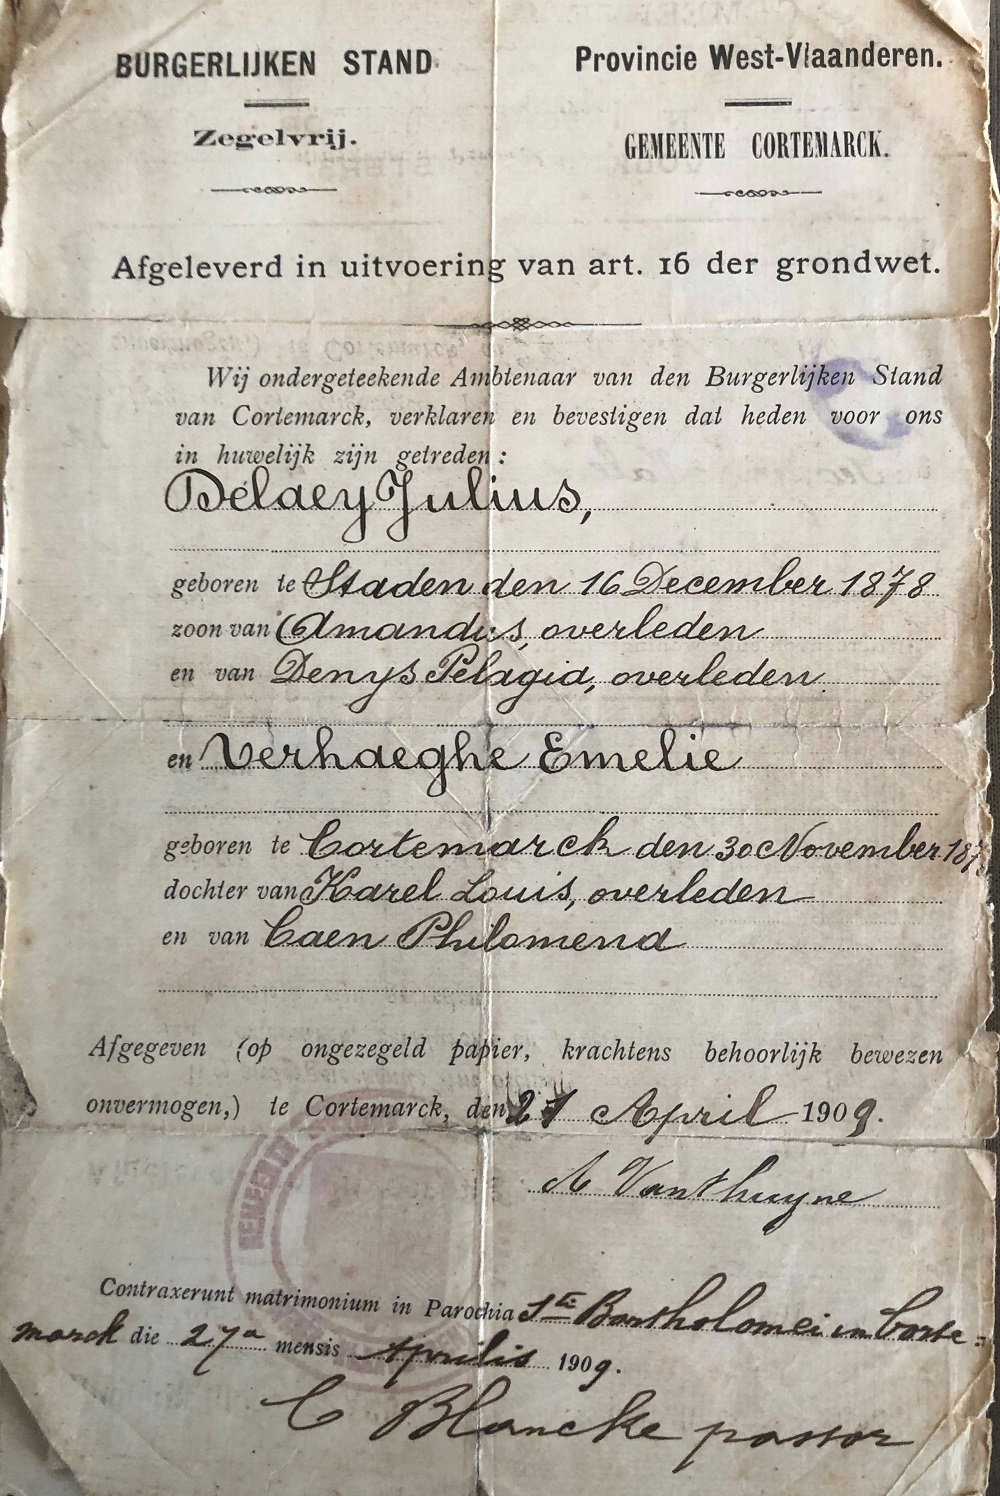 BURGERLIJKEN STAND
Zegelvrij.
Provincie West-Vlaanderen.
GEMEENTE CORTEMARCK.
Afgeleverd in uitvoering van art. 16 der grondwet.
Wij ondergeteekende Ambtenaar van den Burgerlijken Stand
van Cortemarck, verklaren en bevestigen dat heden voor ons
in huwelijk zijn getreden :
Delaey Julius,
geboren te Staden den 16 December 1878
zoon van Amandus, overleden
en van Denys Pelagia, overleden
en Verhaeghe Emelie
geboren te Cortemarck den 30 November
dochter van Karel Louis, overleden
en van Caen Philomena
Afgegeven (op ongezegeld papier, krachtens behoorlijk bewezen
onvermogen,) te Cortemarck, den 27 April 1909.
A Vanthuyne
Contraxerunt matrimonium in Parochia Sti Bartholomei in Corte=
marck die 27a mensis Aprilis 1909.
C Blancke pastor